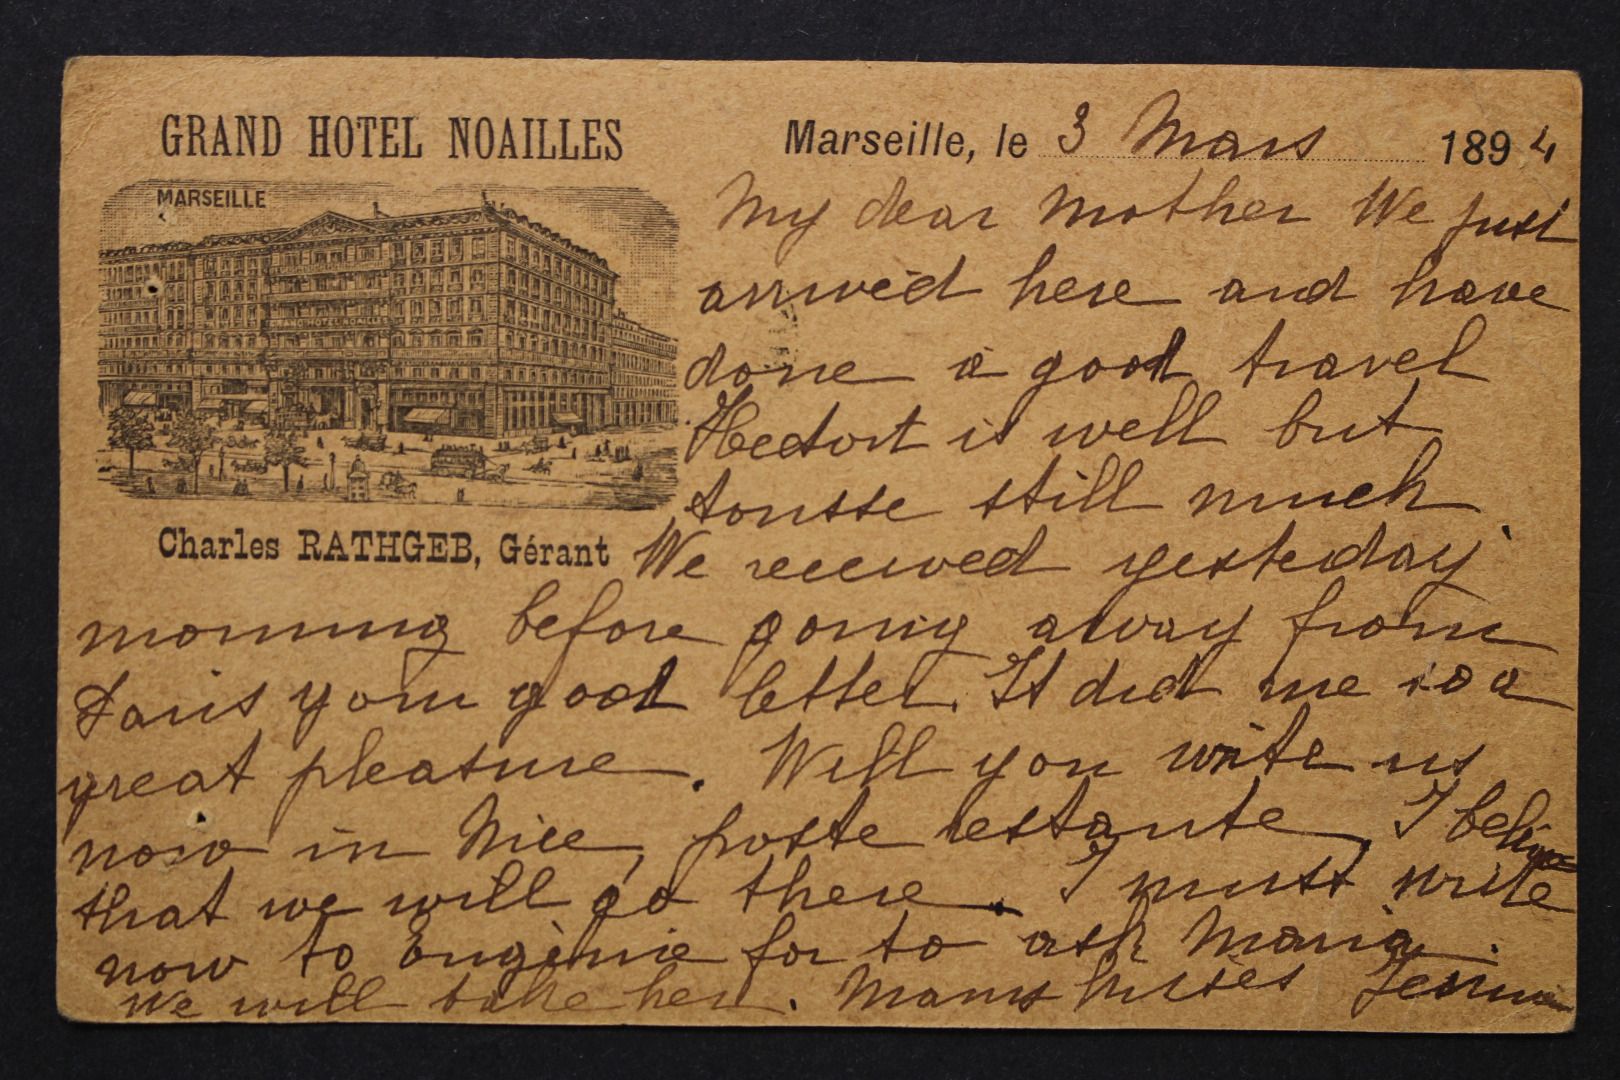 GRAND HOTEL NOAILLES
MARSEILLE
GRAND HOTEL NOAILLES
Charles RATHGEB, Gérant
Marseille, le 3 Mars 1894
My dear mother We just
arrived here and have
done a good travel
Hectort is well but
tousse still much
We received yesteday
morning before going away from
Paris your good letter. It did me so a
great pleasure. Will you write us
now in Nice, poste restante, I belive
that we will go there. I must write
now to Eugénie for to ask Maria.
We will take her. Many kisses